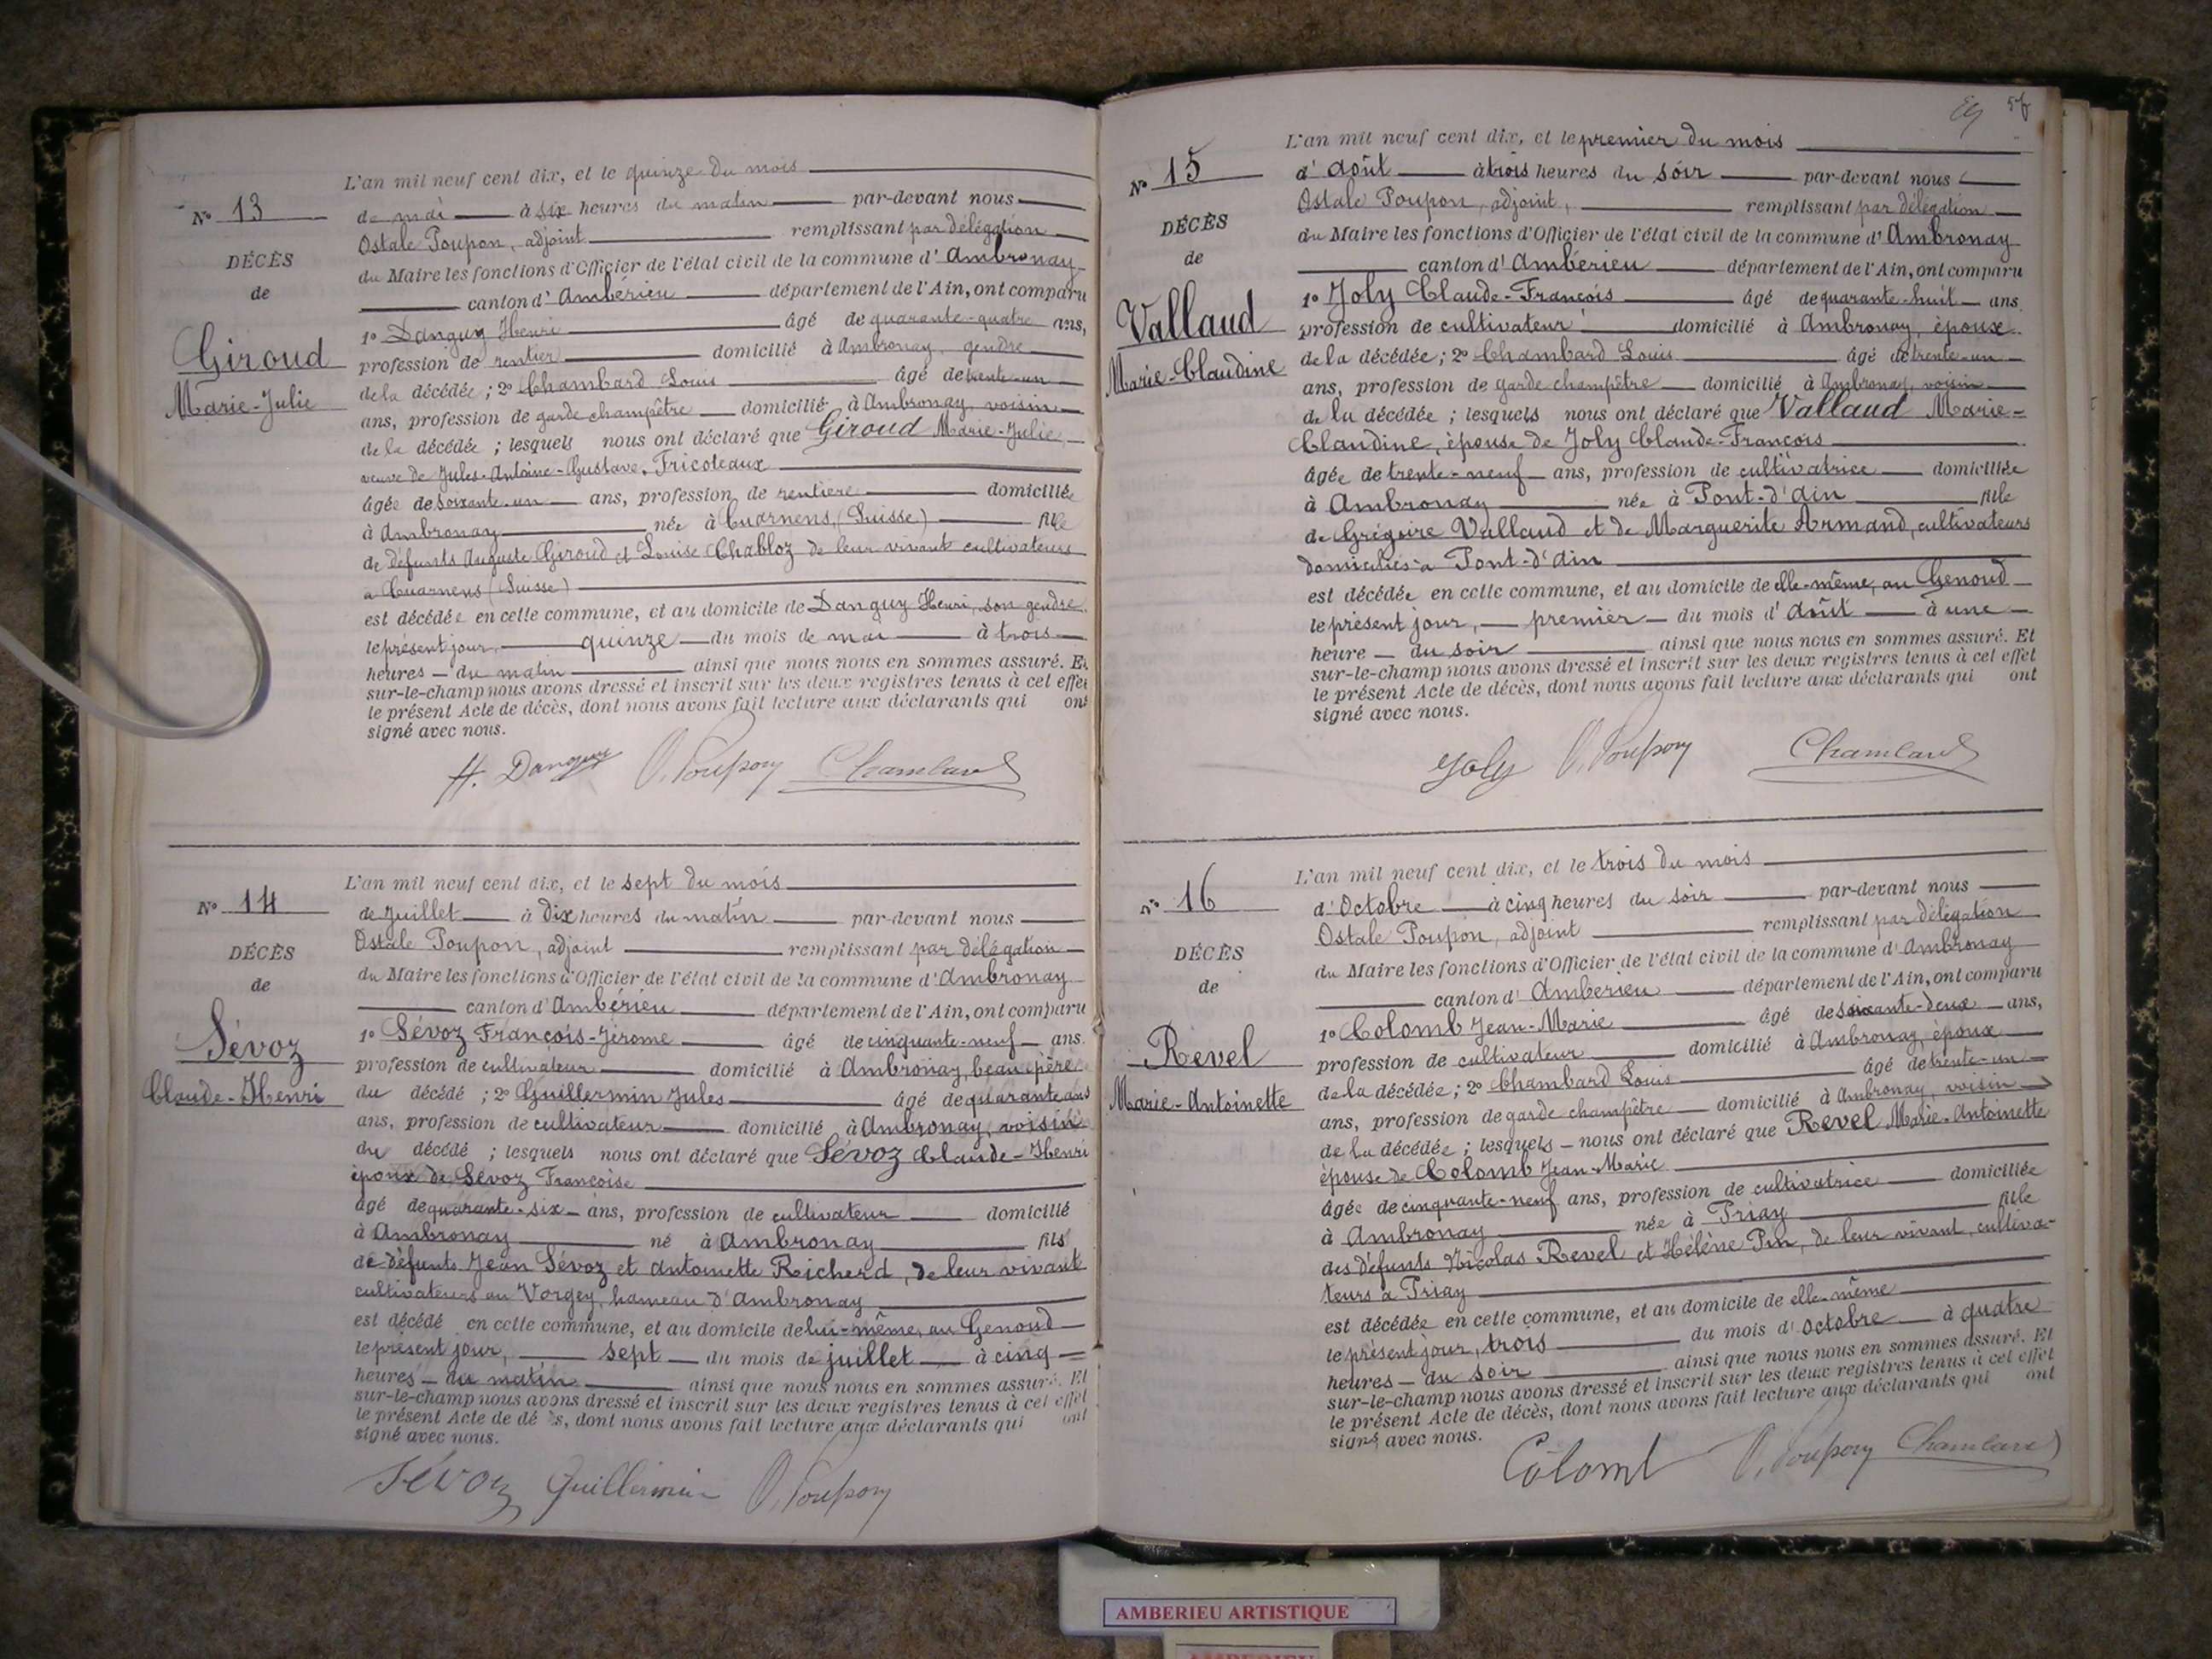 N° 13
DÉCÈS
de
Giroud
Marie-Julie
L'an mil neuf cent dix, et le quinze du mois
de mai à six heures du matin par-devant nous
Ostale Poupon, adjoint remplissant par délégation
du Maire les fonctions d'Officier de l'état civil de la commune d'Ambronay
canton d'Ambérieu département de l'Ain, ont comparu
1° Danguy Henri âgé de quarante-quatre ans,
profession de rentier domicilié à Ambronay, gendre
de la décédée ; 2° Chambard Louis âgé de trente-un
ans, profession de garde champêtre domicilié à Ambronay, voisin
de la décédée ; lesquels nous ont déclaré que Giroud Marie-Julie
veuve de Jules-Antoine-Gustave, Fricoteaux
âgée de soixante-un ans, profession de rentière domiciliée
à Ambronay née à Cuarnens, (Suisse) fille
de défunts Auguste Giroud et Louise Chabloz de leur vivant cultivateurs
a Cuarnens (Suisse)
est décédée en cette commune, et au domicile de Danguy Henri, son gendre
le présent jour, quinze du mois de mai à trois
heures du matin ainsi que nous nous en sommes assuré. Et
sur-le-champ nous avons dressé et inscrit sur les deux registres tenus à cet effet
le présent Acte de décès, dont nous avons fait lecture aux déclarants qui ont
signé avec nous.
H. Danguy O. Poupon Chambard
N° 14
DÉCÈS
de
Sévoz
Claude-Henri
L'an mil neuf cent dix, et le sept du mois
de Juillet à dix heures du matin par-devant nous
Ostale Poupon, adjoint remplissant par délégation
du Maire les fonctions d'Officier de l'état civil de la commune d'Ambronay
canton d'Ambérieu département de l'Ain, ont comparu
1° Sévoz François-Jérome âgé de cinquante-neuf ans.
profession de cultivateur domicilié à Ambronay, beau-père
du décédé ; 2° Guillermin Jules âgé de quarante ans
ans, profession de cultivateur domicilié à Ambronay, voisin
du décédé ; lesquels nous ont déclaré que Sévoz Claude-Henri
époux de Sévoz Françoise
âgé de quarante-six ans, profession de cultivateur domicilié
à Ambronay né à Ambronay fils
de défunts Jean Sévoz et Antoinette Richerd, de leur vivant
cultivateurs au Vorgey, hameau d'Ambronay
est décédé en cette commune, et au domicile de lui-même, au Genoud
le présent jour, sept du mois de juillet à cinq
heures du matin ainsi que nous nous en sommes assuré. Et
sur-le-champ nous avons dressé et inscrit sur les deux registres tenus à cet effet
le présent Acte de dé s, dont nous avons fait lecture aux déclarants qui ont
signé avec nous.
Sévoz Guillermin O. Poupon
N° 15
DÉCÈS
de
Vallaud
Marie-Claudine
L'an mil neuf cent dix, et le premier du mois
d'août à trois heures du soir par-devant nous
Ostale Poupon, adjoint, remplissant par délégation
du Maire les fonctions d'Officier de l'état civil de la commune d'Ambronay
canton d'Ambérieu département de l'Ain, ont comparu
1° Joly Claude-François âgé de quarante-huit ans.
profession de cultivateur domicilié à Ambronay, époux
de la décédée ; 2° Chambard Louis âgé de trente-un
ans, profession de garde champêtre domicilié à Ambronay, voisin
de la décédée ; lesquels nous ont déclaré que Vallaud Marie-
Claudine, épouse de Joly Claude-François
âgée de trente-neuf ans, profession de cultivatrice domiciliée
à Ambronay née à Pont-d'Ain fille
de Grégoire Vallaud et de Marguerite Armand, cultivateurs
domiciliés à Pont-d'Ain
est décédée en cette commune, et au domicile de elle-même, au Genoud
le présent jour, premier du mois d'août à une
heure du soir ainsi que nous nous en sommes assuré. Et
sur-le-champ nous avons dressé et inscrit sur les deux registres tenus à cet effet
le présent Acte de décès, dont nous avons fait lecture aux déclarants qui ont
signé avec nous.
Joly O. Poupon Chambard
N° 16
DÉCÈS
de
Revel
Marie-Antoinette
L'an mil neuf cent dix, et le trois du mois
d'Octobre à cinq heures du soir par-devant nous
Ostale Poupon, adjoint remplissant par délégation
du Maire les fonctions d'Officier de l'état civil de la commune d'Ambronay
canton d'Ambérieu département de l'Ain, ont comparu
1° Colomb Jean-Marie âgé de soixante-deux ans,
profession de cultivateur domicilié à Ambronay, époux
de la décédée ; 2° Chambard Louis âgé de trente-un
ans, profession de garde champêtre domicilié à Ambronay, voisin
de la décédée ; lesquels nous ont déclaré que Revel Marie-Antoinette
épouse de Colomb Jean-Marie
âgée de cinquante-neuf ans, profession de cultivatrice domiciliée
à Ambronay née à Priay fille
des défunts Nicolas Revel et Hélène Pin, de leur vivant, cultiva-
teurs à Priay
est décédée en cette commune, et au domicile de elle-même
le présent jour, trois du mois d'octobre à quatre
heures du soir ainsi que nous nous en sommes assuré. Et
sur-le-champ nous avons dressé et inscrit sur les deux registres tenus à cet effet
le présent Acte de décès, dont nous avons fait lecture aux déclarants qui ont
signé avec nous.
Colomb O. Poupon Chambard
AMBERIEU ARTISTIQUE
AMBERIEU